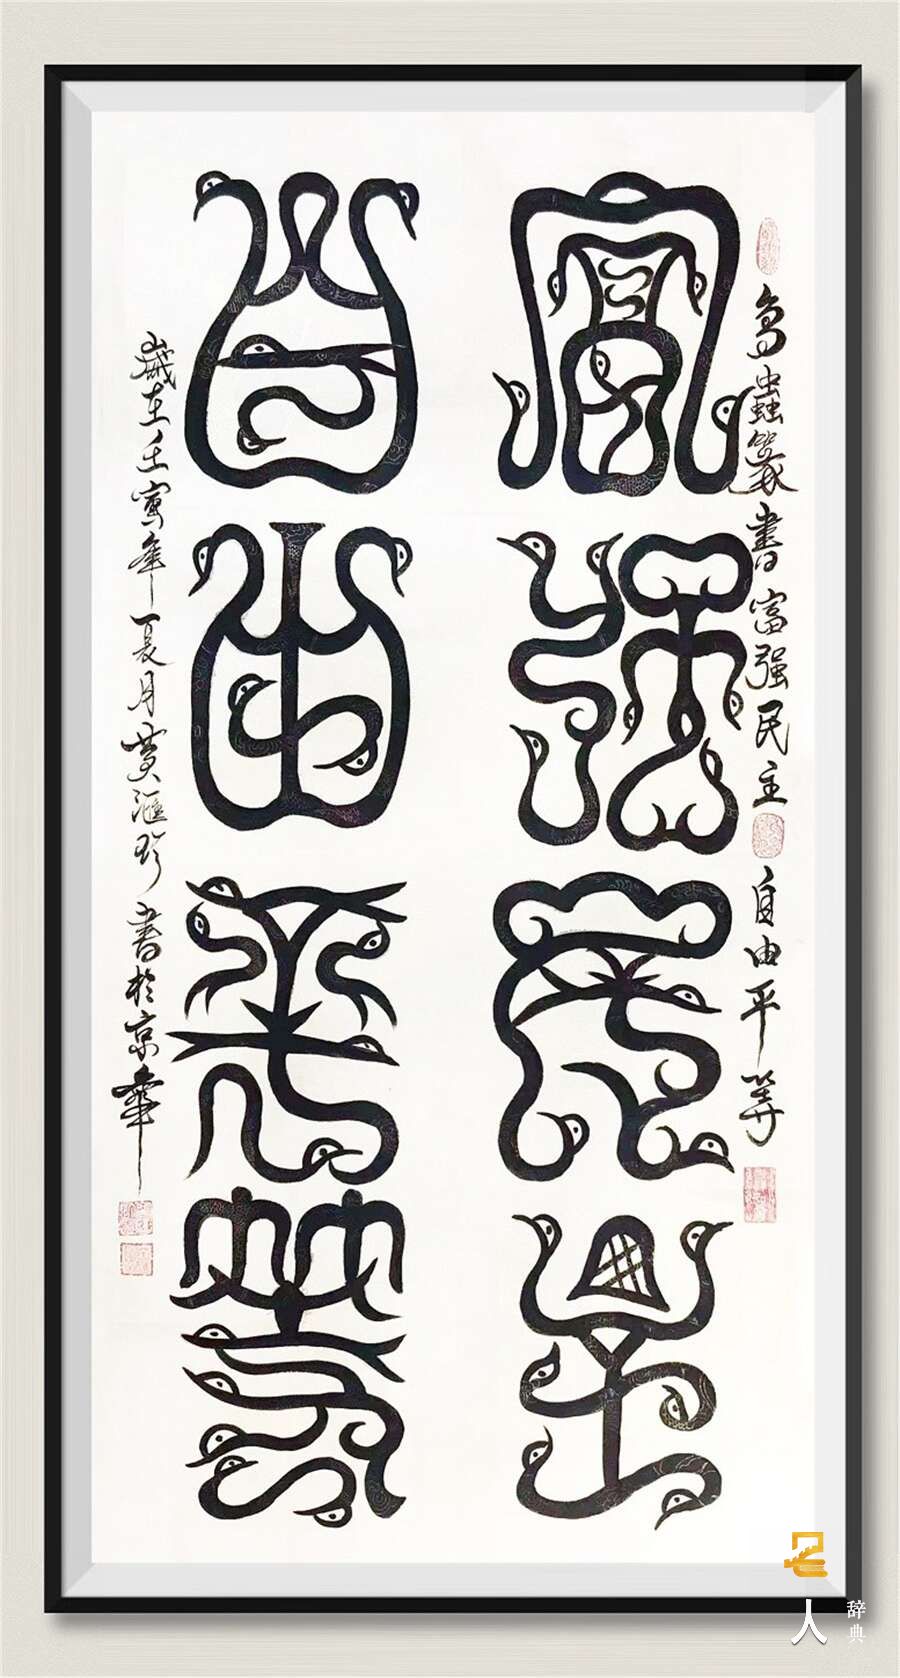 鸟蟲篆書富强民主自由平等
富强民主
自由平等
歲在壬寅年夏月黄滙珍書於京華
名人
辞典